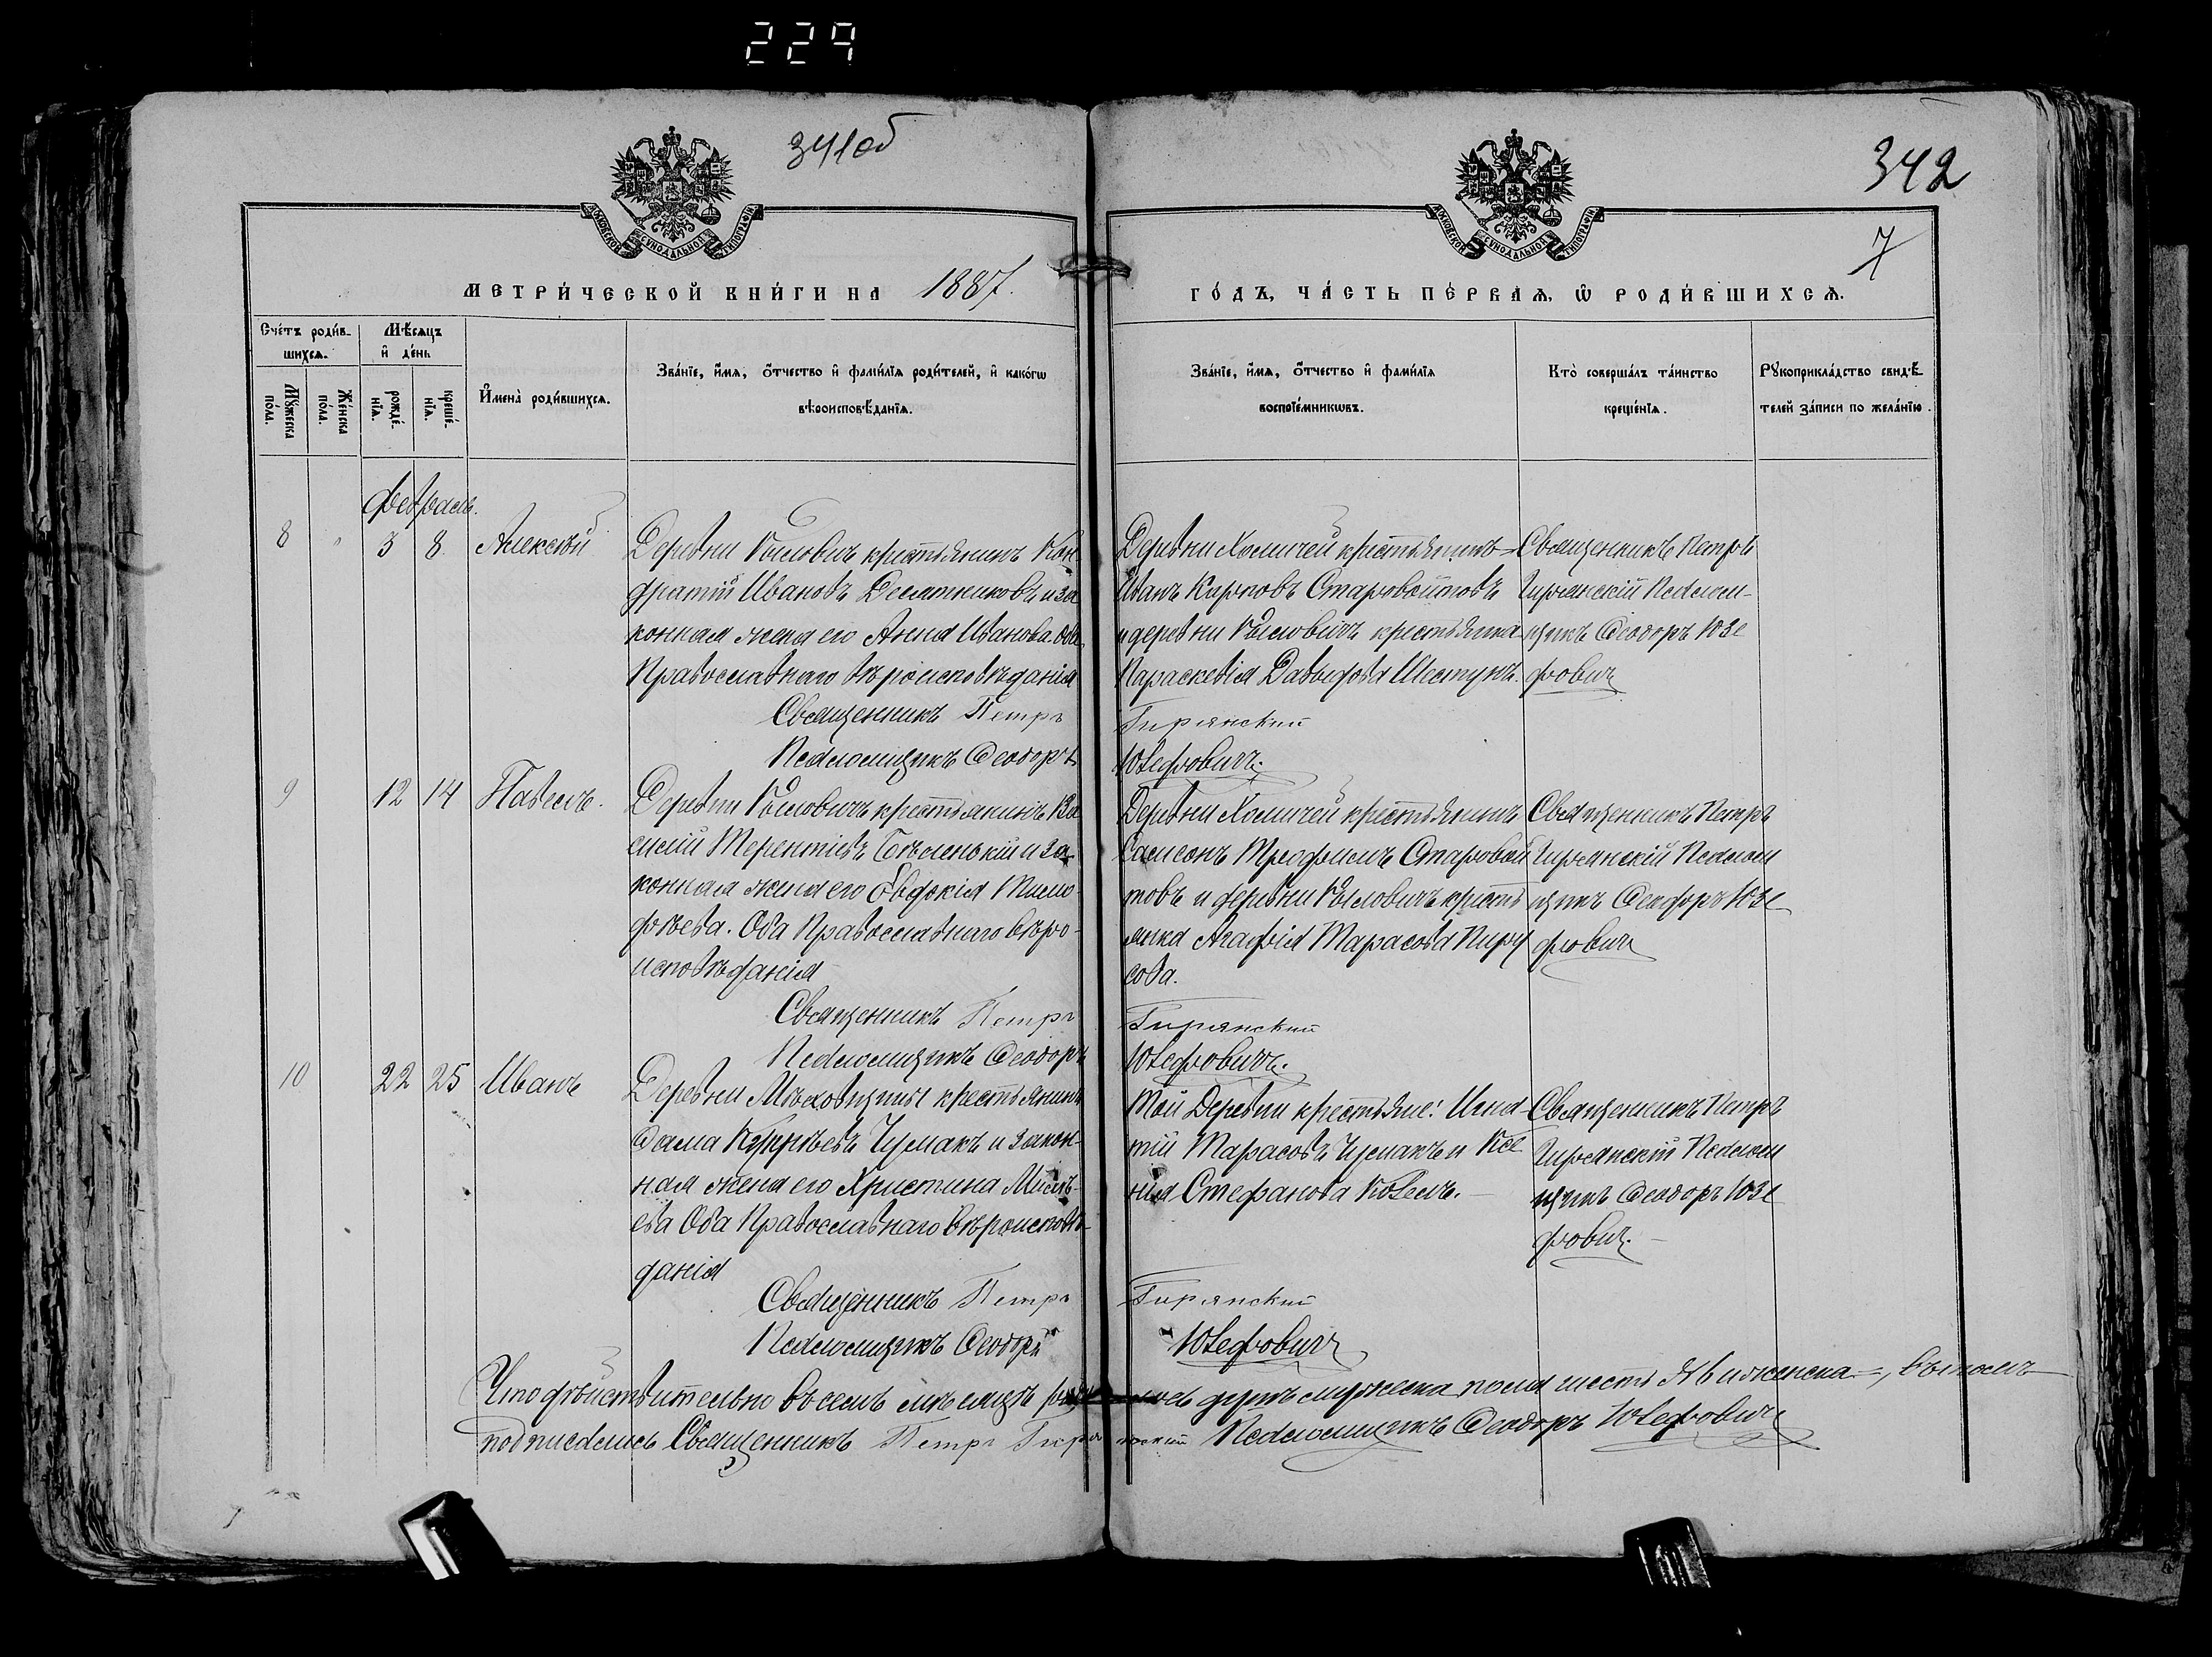 229
341об
342
7
МОСКОВСКОЙ СУНОДАЛЬНОЙ ТИПОГРАФІИ
МОСКОВСКОЙ СУНОДАЛЬНОЙ ТИПОГРАФІИ
МЕТРИ́ЧЕСКОЙ КНИ́ГИ НА 1887.
ГО́ДЪ, ЧА́СТЬ ПЕ́РВАЯ, Ѿ РОДИ́ВШИХСЯ.
Сче́тъ роди́в-
шихся.
Мѣ́сяцъ
и҆ де́нь
Мꙋ́жеска
по́ла.
Же́нска
по́ла.
рожде́-
нїѧ.
креще́-
нїѧ.
И҆мена̀ роди́вшихся.
Зва́нїе, и҆́мѧ, ѻ҆́тчество и҆ фами́лїѧ роди́телей, и҆ како́гѡ
вѣроисповѣ́данїѧ.
Зва́нїе, и҆́мѧ, ѻ҆́тчество и҆ фами́лїѧ
воспрїе́мникѡвъ.
Кто̀ соверша́лъ та́инство
креще́нїѧ.
Рꙋкоприкла́дство свидѣ́-
телей за́писи по жела́нїю.
Февраль.
8 3 8 Алексѣй
Деревни крестьянинъ Кон
дратій Ивановъ Десятниковъ и за
конная жена его Анна Иванова. Оба
Православнаго вѣроисповѣданія
Священникъ Петръ
Псаломщикъ Ѳеодоръ
Деревни Холичей крестьянинъ
Иванъ Карповъ Старовойтовъ
и деревни крестьянка
Параскевія Давыдова Шестукъ.
Гирянскій
Юзефовичъ.
Священникъ Петръ
Гирянскій Псалом-
щикъ Ѳеодоръ Юзе
фовичъ
9 12 14 Павелъ.
Деревни крестьянинъ Ва
силій Терентіевъ Бѣленькій и за
конная жена его Евдокія Тимо-
фѣева. Оба Православнаго вѣро-
исповѣданія
Священникъ Петръ
Псаломщикъ Ѳеодоръ
Деревни Холичей крестьянинъ
Самсонъ Старовой
товъ и деревни кресть
янка Агафія Тарасова
сова.
Гирянскій
Юзефовичъ.
Священникъ Петръ
Гирянскій Псалом
щикъ Ѳеодоръ Юзе
фовичъ
10 22 25 Иванъ
Деревни крестьянинъ
Ѳома Чумакъ и закон-
ная жена его Христина
ева Оба Православнаго вѣроисповѣ-
данія
Священникъ Петръ
Псаломщикъ Ѳеодоръ
Той Деревни крестьяне: Игна-
тій Тарасовъ Чумакъ и Ксе
нія Стефанова Ковель.
Гирянскій
Юзефовичъ
Священникъ Петръ
Гирянскій Псалом
щикъ Ѳеодоръ Юзе
фовичъ.
Что дѣйствительно въ семъ мѣсяцѣ мужеска пола шесть и женска, въ томъ
подписались Священникъ Петръ Гирянскій Псаломщикъ Ѳеодоръ Юзефовичъ